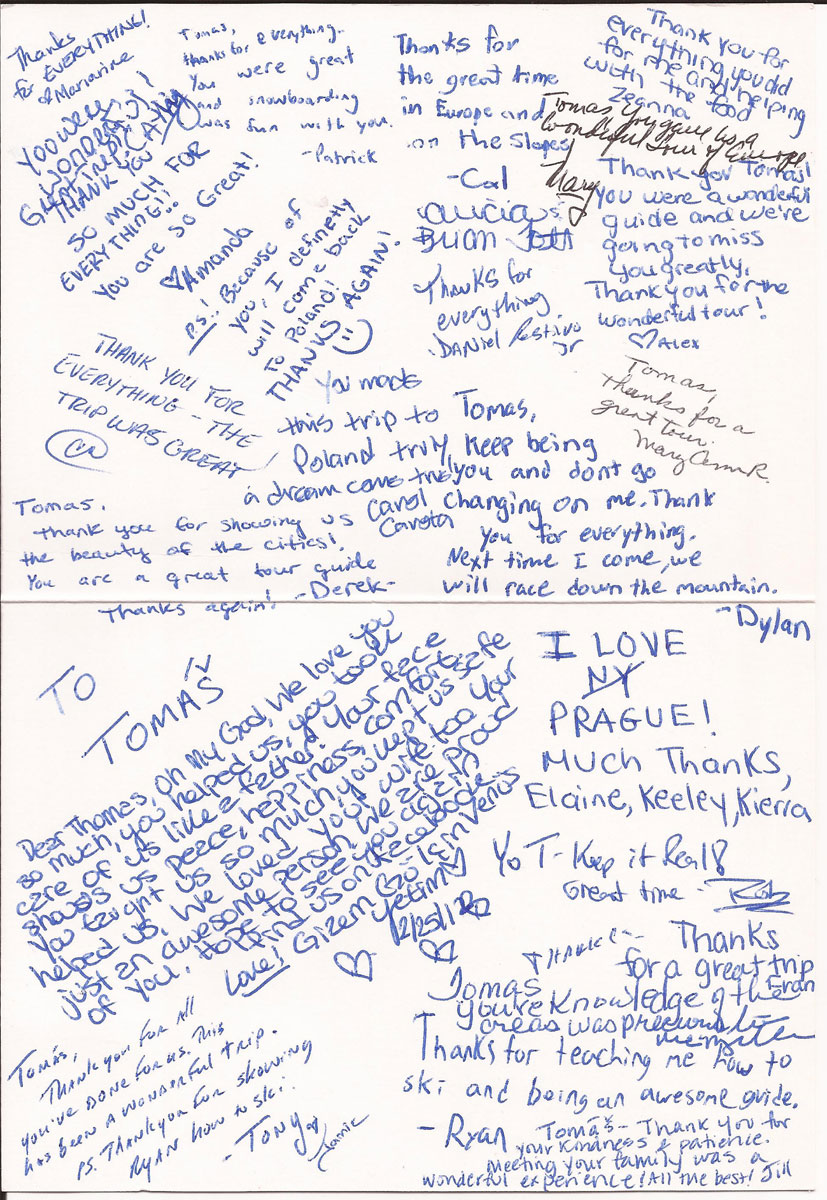 Thanks
for EVERYTHING!
Marianne
YOU WERE
WONDERFUL!
GREAT TRIP, CATHY
THANK YOU
SO MUCH FOR
EVERYTHING!!
YOU ARE SO Great!
♡Amanda
P.S.! Because of
you, I definetly
will come back
to Poland!
THANKS AGAIN!
Tomas,
thanks for everything.
You were great
and snowboarding
was fun with you.
-Patrick
Thanks for
the great time
in Europe and
on the Slopes
-Cal
Thank you for
everything you did
for me and helping
with the food
Tomas You gave us a
wonderful Tour of Europe
Mary
Thank you Tomas!
you were a wonderful
guide and we're
going to miss
you greatly.
Thank you for the
wonderful tour!
♡ Alex
Alicia &
Brian
Thanks for
everything.
DANIEL Restivo
Jr
Tomas,
thanks for a
great Tour.
Mary Ann R.
THANK YOU FOR
EVERYTHING - THE
TRIP WAS GREAT
You made
this trip to
Poland truly
a dream come true!
Carol
Tomas,
Keep being
you and dont go
changing on me. Thank
you for everything.
Next time I come, we
will race down the mountain.
-Dylan
Tomas.
thank you for showing us
the beauty of the cities!
You are a great tour guide
Thanks again! -Derek-
TO
TOMAŠ
Dear Thomas, Oh My God, We love you
so much, you helped us, you took
care of us like a father! Your face
shows us peace, happiness, comfort.
You taught us so much, you kept us safe
helped us, We loved your wife too. Your
just an awesome person. We are proud
of you. Hope to see you again
adding us on facebook.
Love! Gizem
Yetim♡
♡ ♡
I LOVE
NY
PRAGUE!
Much Thanks,
Elaine, Keeley, Kierra
Yo T- Keep it Real!
Great time - Rob
Thanks
for a great trip
Eran
Tomas
you're Knowledge of the
areas was
Thanks for teaching me how to
ski and being an awesome guide.
- Ryan
Tomás,
Thank you for all
you've done for us. This
has been a wonderful trip.
PS. Thank you for showing
RYAN how to ski.
- Tony
Tomás - Thank you for
your kindness & patience.
Meeting your family was a
wonderful experience! All the best! Jill